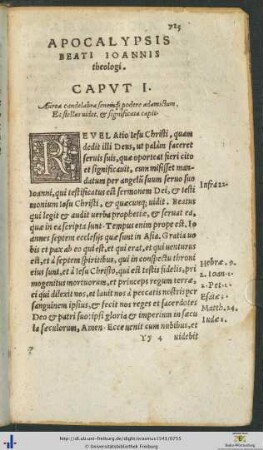 725
APOCALYPSIS
BEATI IOANNIS
theologi.
CAPVT I.
Aurea candelabra
Et stellas uidet, & significata capit.
REVELAtio Iesu Christi, quam
dedit illi Deus, ut palàm faceret
seruis suis, quæ oporteat fieri cito
et significauit, cum misisset man-
datum per angelũ suum seruo suo
Ioanni, qui testificatus est sermonem Dei, & testi
monium Iesu Christi, & quæcunq; uidit. Beatus
qui legit & audit uerba prophetiæ, & seruat ea,
quæ in ea scripta sunt. Tempus enim prope est. Io
annes septem ecclesijs quæ sunt in Asia. Gratia uo
bis et pax ab eo qui est, et qui erat, et qui uenturus
est: et à septem spiritibus, qui in conspectu throni
eius sunt, et à Iesu Christo, qui est testis fidelis, pri
mogenitus mortuorum, et princeps regum terræ,
qui dilexit nos, et lauit nos à peccatis nostris per
sanguinem ipsius, et fecit nos reges et sacerdotes
Deo & patri suo: ipsi gloria & imperium in secu
la seculorum, Amen. Ecce uenit cum nubibus, et
Yy 4 uidebit
Infra 22.
Hebræ. 9.
1. Ioan. 1.
1. Pet. 1.
Esaiæ
Matth. 24.
Iudæ 1.
http://dl.ub.uni-freiburg.de/diglit/erasmus1543/0755
© Universitätsbibliothek Freiburg